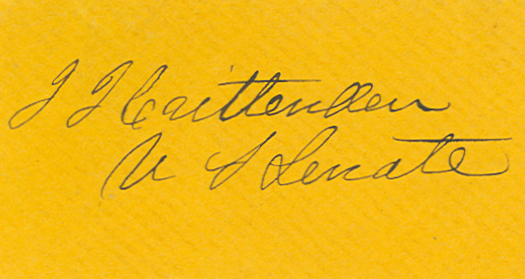 J J Crittenden
U S Senate